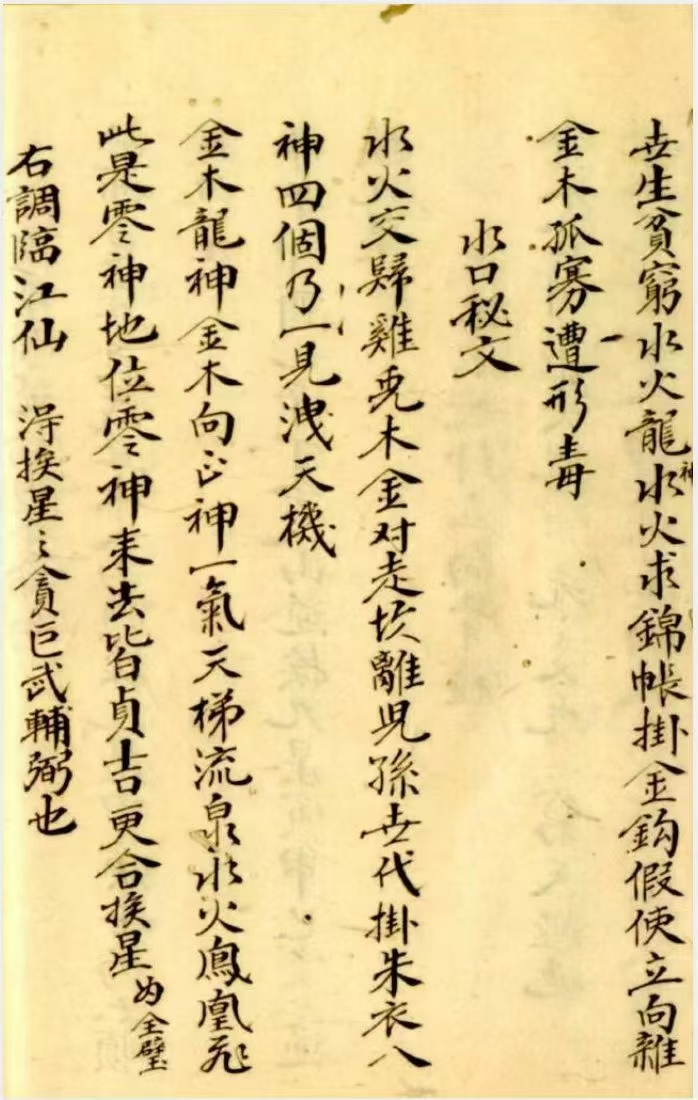 世生貧窮水火龍神水火求錦帳掛金鈎假使立向雜
金木孤寡遭形毒
水口秘文
水火交歸雞兎木金对走坎離児孫世代掛朱衣八
神四個乃一見洩天機
金木龍神金木向正神一氣天梯流泉水火鳳凰飛
此是零神地位零神來去皆貞吉更合挨星如全璧
右調臨江仙　淂挨星之貪巨武輔弼也